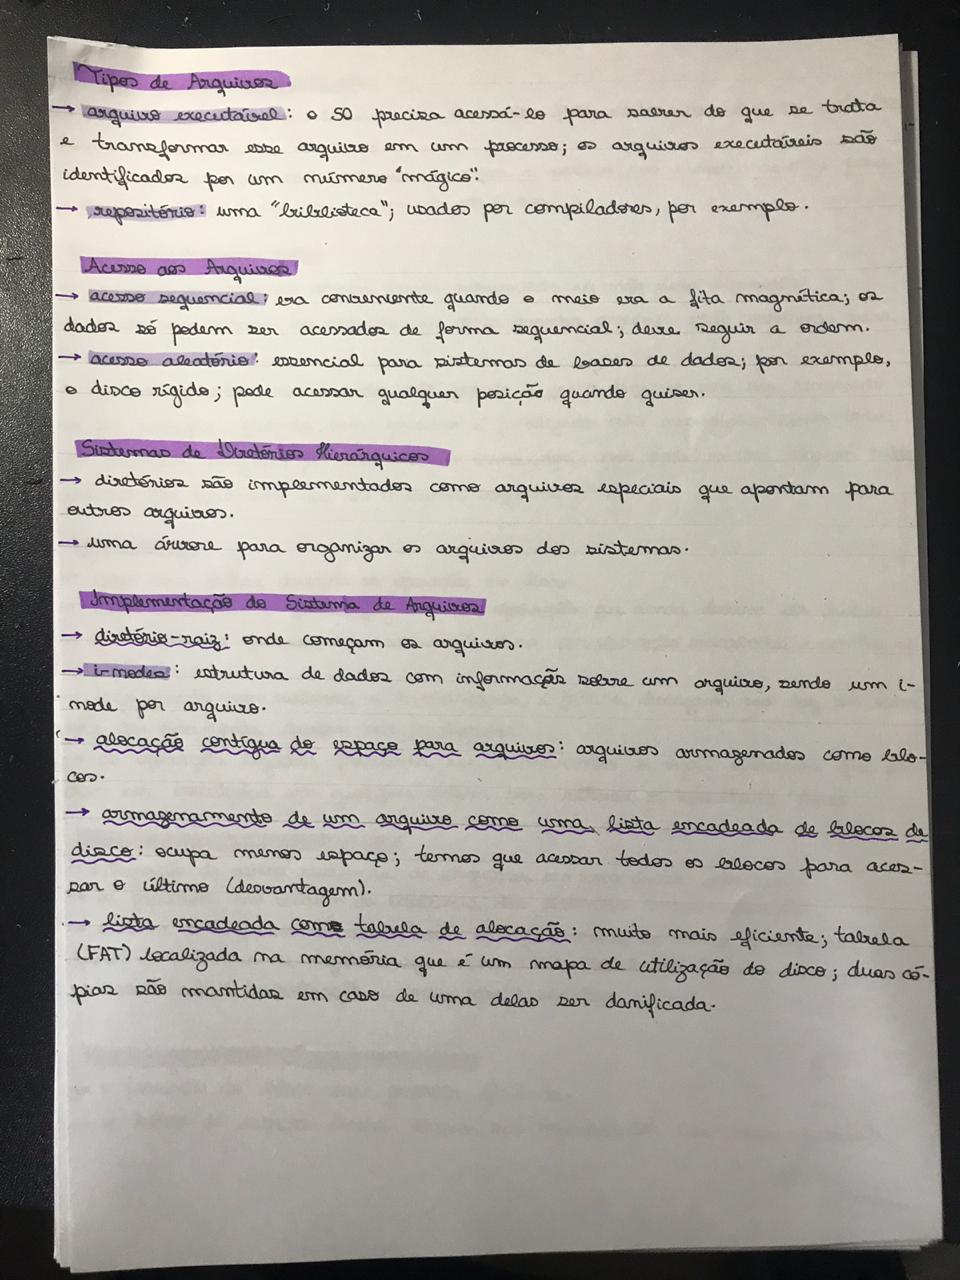 Tipos de Arquivos
→ arquivo executável: o SO precisa acessá-lo para saber do que se trata
e transformar esse arquivo em um processo; os arquivos executáveis são
identificados por um número "mágico".
→ repositório: uma "biblioteca"; usados por compiladores, por exemplo.
Acesso aos Arquivos
→ acesso sequencial: era conveniente quando o meio era a fita magnética; os
dados só podem ser acessados de forma sequencial; deve seguir a ordem.
→ acesso aleatório: essencial para sistemas de bases de dados; por exemplo,
o disco rígido; pode acessar qualquer posição quando quiser.
Sistemas de Diretórios Hierárquicos
→ diretórios são implementados como arquivos especiais que apontam para
outros arquivos.
→ uma árvore para organizar os arquivos dos sistemas.
Implementação do Sistema de Arquivos
→ diretório-raiz: onde começam os arquivos.
→ i-nodes: estrutura de dados com informação sobre um arquivo, sendo um i-
node por arquivo.
→ alocação contígua do espaço para arquivos: arquivos armazenados como blo-
cos.
→ armazenamento de um arquivo como uma lista encadeada de blocos de
disco: ocupa menos espaço; temos que acessar todos os blocos para aces-
sar o último (desvantagem).
→ lista encadeada como tabela de alocação: muito mais eficiente; tabela
(FAT) localizada na memória que é um mapa de utilização do disco; duas có-
pias são mantidas em caso de uma delas ser danificada.